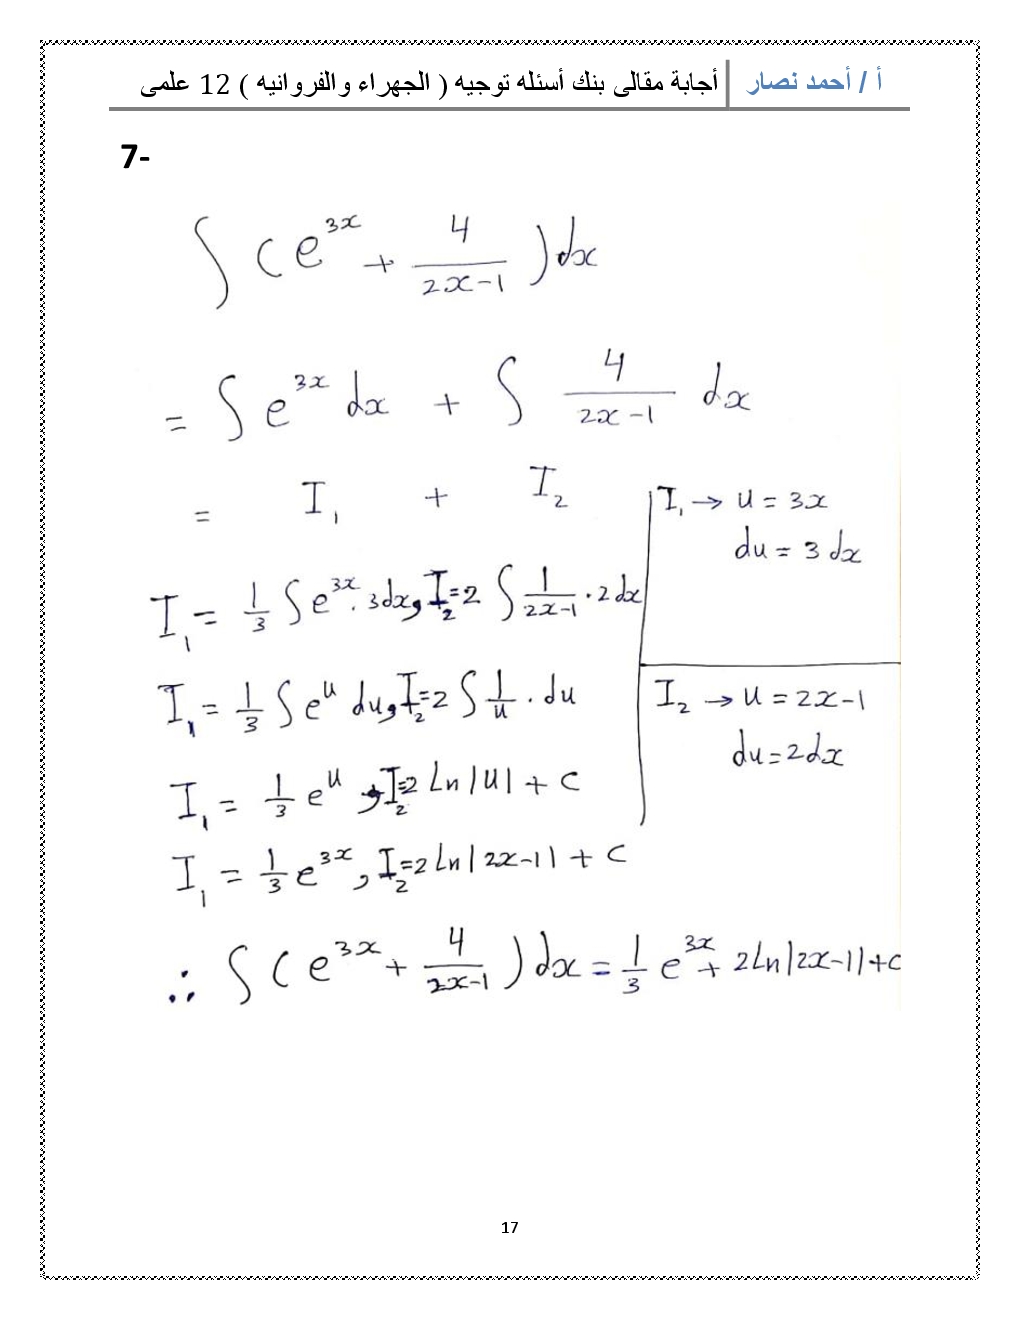 أ / أحمد نصار أجابة مقالى بنك أسئله توجيه ( الجهراء والفروانيه ) 12 علمى
7-
∫ ( e^{3x} + 4/(2x-1) ) dx
= ∫ e^{3x} dx + ∫ 4/(2x-1) dx
= I₁ + I₂
I₁ → u = 3x
du = 3 dx
I₁ = 1/3 ∫ e^{3x} . 3dx , I₂ = 2 ∫ 1/(2x-1) . 2dx
I₁ = 1/3 ∫ e^u du , I₂ = 2 ∫ 1/u . du
I₂ → u = 2x-1
du = 2dx
I₁ = 1/3 e^u , I₂ = 2 Ln |u| + C
I₁ = 1/3 e^{3x} , I₂ = 2 Ln |2x-1| + C
∴ ∫ ( e^{3x} + 4/(2x-1) ) dx = 1/3 e^{3x} + 2 Ln |2x-1| + C
17